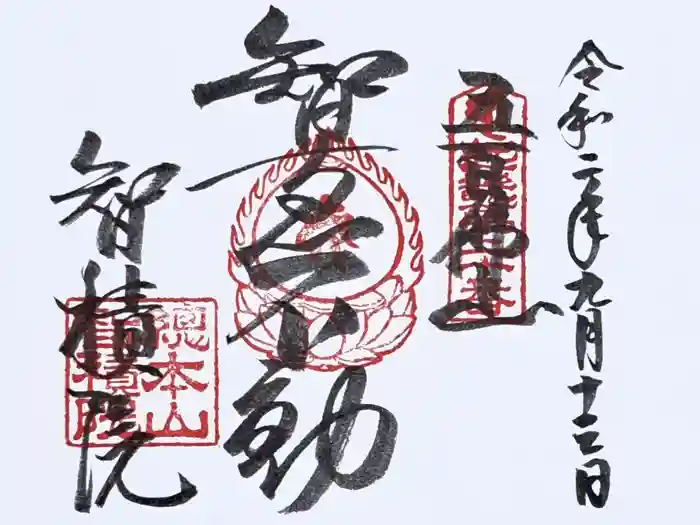 令和二年九月十三日
五百佛山
智 不動
智積院
總本山
智積院